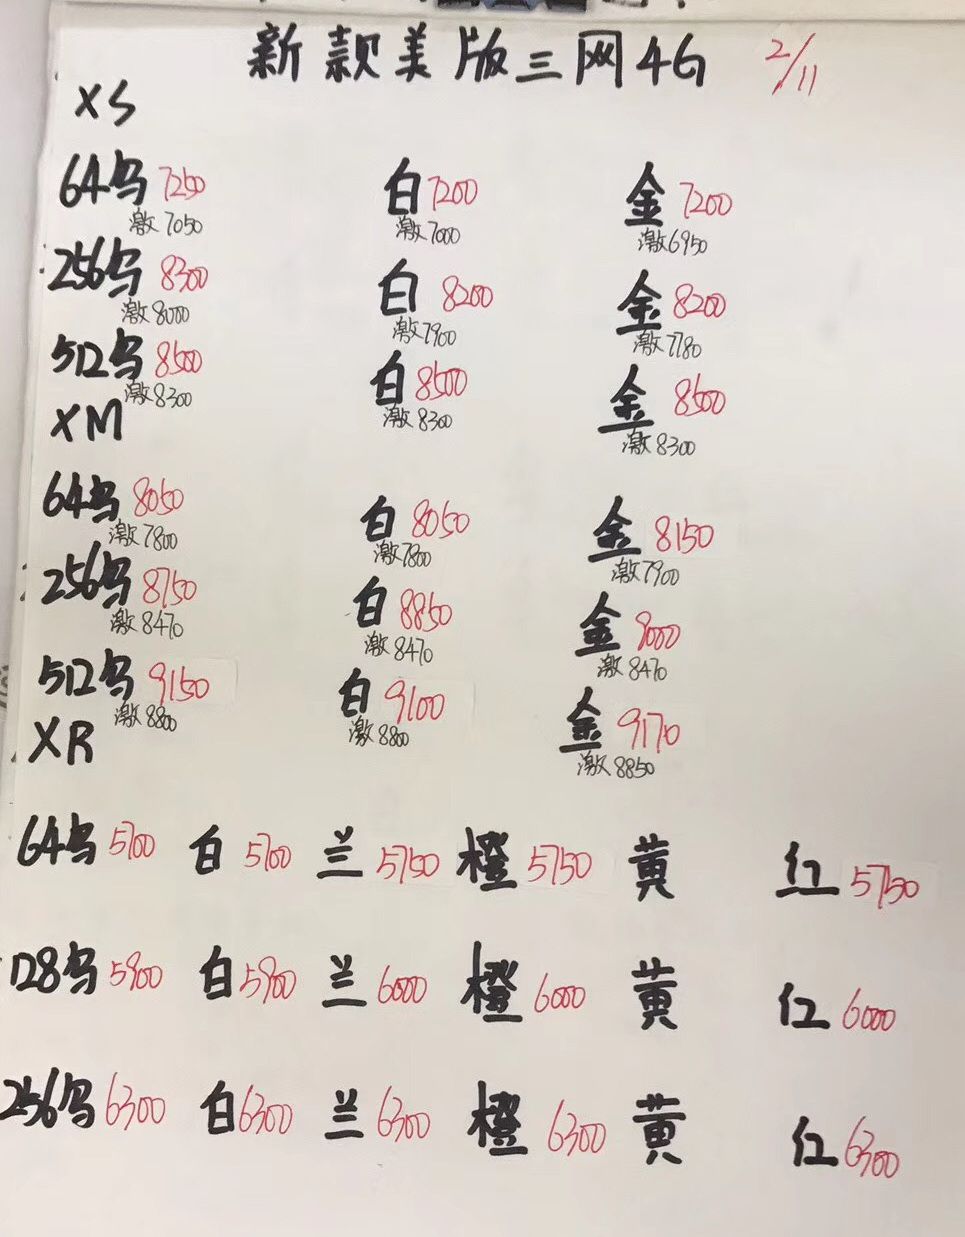 新款美版三网4G 2/11
XS
64乌 7250 白 7200 金 7200
激7050 激7000 激6950
256乌 8300 白 8200 金 8200
激8000 激7900 激7780
512乌 8500 白 8500 金 8500
激8300 激8300 激8300
XM
64乌 8050 白 8050 金 8150
激7800 激7800 激7900
256乌 8750 白 8850 金 9000
激8470 激8470 激8470
512乌 9150 白 9100 金 9170
激8800 激8800 激8850
XR
64乌 5700 白 5700 兰 5750 橙 5750 黄 红 5750
128乌 5900 白 5900 兰 6000 橙 6000 黄 红 6000
256乌 6300 白 6300 兰 6300 橙 6300 黄 红 6300